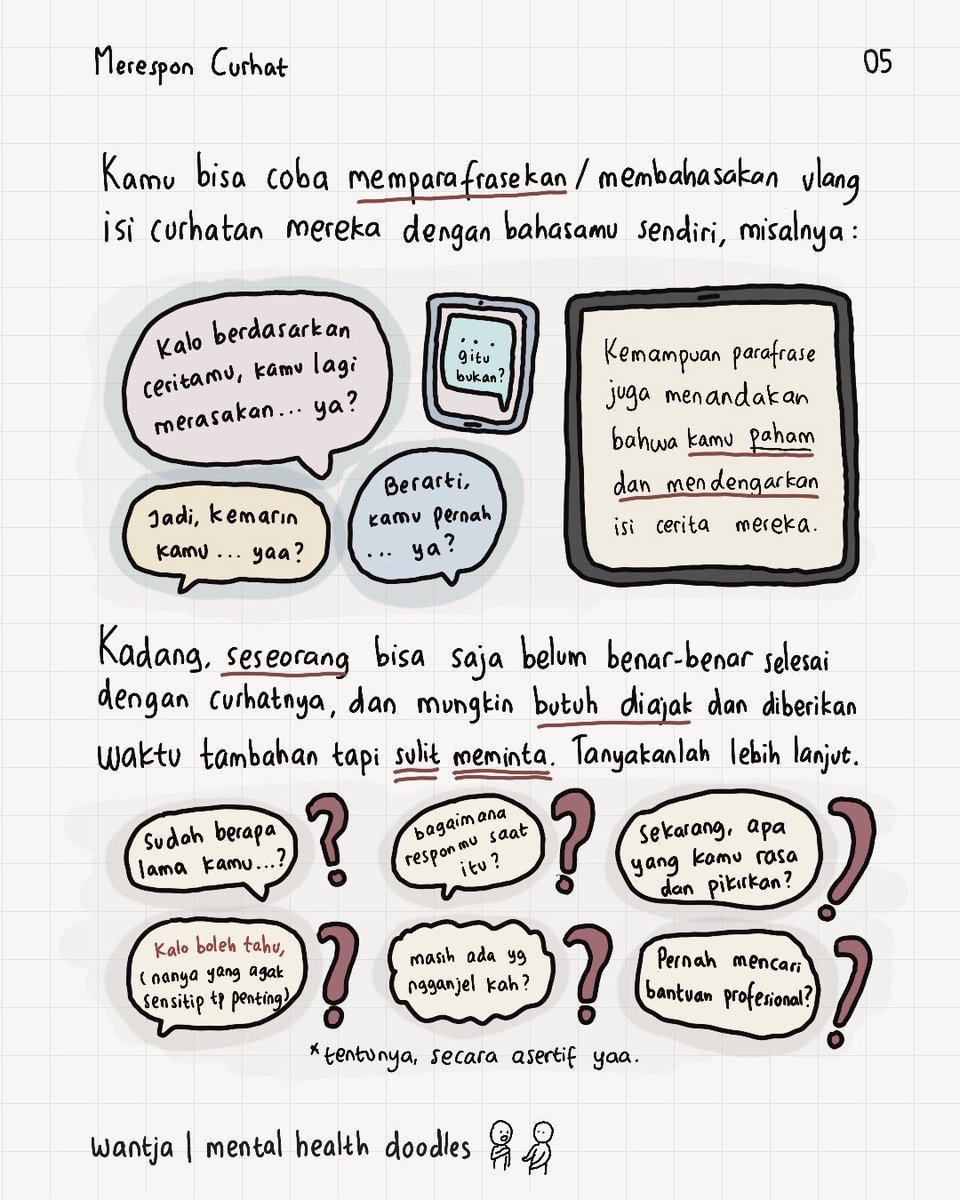 Merespon Curhat
05
Kamu bisa coba memparafrasekan / membahasakan ulang
isi curhatan mereka dengan bahasamu sendiri, misalnya:
Kalo berdasarkan
ceritamu, kamu lagi
merasakan... ya?
...
gitu
bukan?
Jadi, kemarin
kamu ... yaa?
Berarti,
kamu pernah
... ya?
Kemampuan parafrase
juga menandakan
bahwa kamu paham
dan mendengarkan
isi cerita mereka.
Kadang, seseorang bisa saja belum benar-benar selesai
dengan curhatnya, dan mungkin butuh diajak dan diberikan
waktu tambahan tapi sulit meminta. Tanyakanlah lebih lanjut.
Sudah berapa
lama kamu...?
?
bagaimana
responmu saat
itu?
?
Sekarang, apa
yang kamu rasa
dan pikirkan?
?
Kalo boleh tahu,
(nanya yang agak
sensitip tp penting)
?
masih ada yg
ngganjel kah?
?
Pernah mencari
bantuan profesional?
?
*tentunya, secara asertif yaa.
wantja | mental health doodles